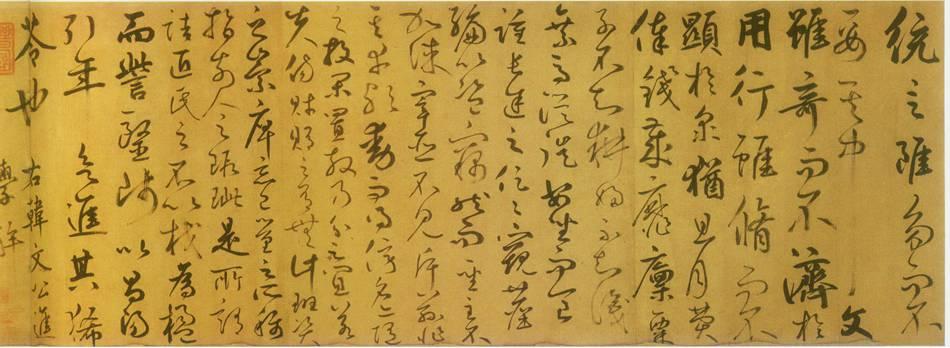 統言雖多而不
要其中文
雖奇而不濟於
用行雖脩而不
顯於衆猶且月費
俸錢歲靡廩粟
子不知耕婦不知織
乘馬從徒安坐而食
踵長途之促促窺陳
編以盜竊然而聖主不
加誅宰臣不見斥茲非
其幸歟動而得謗名亦隨
之投閑置散乃分之宜若
夫商財賄之有無計班資
之崇庳忘己量之所稱
指前人之瑕疵是所謂
詰匠氏之不以杙為楹
而訾醫師以昌陽
引年欲進其豨
苓也
右韓文公進
學解